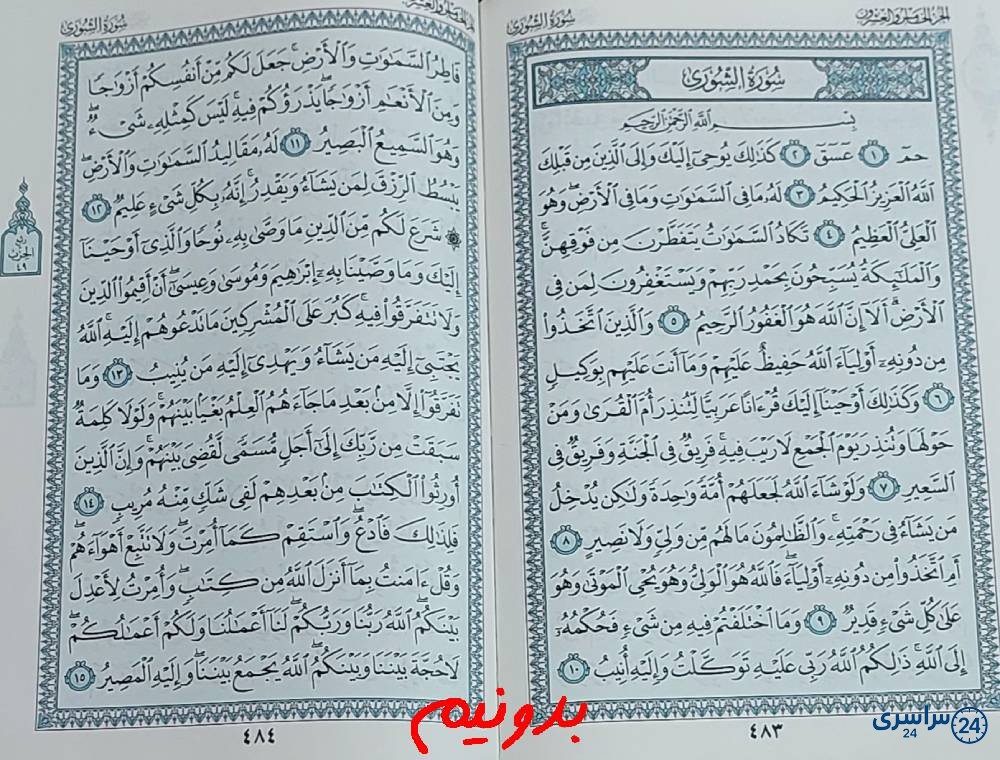 الجزء الخامس والعشرون
سورة الشورى
سُورَةُ الشُّورَىٰ
بِسْمِ اللَّهِ الرَّحْمَٰنِ الرَّحِيمِ
حمٓ ١ عٓسٓقٓ ٢ كَذَٰلِكَ يُوحِيٓ إِلَيْكَ وَإِلَى ٱلَّذِينَ مِن قَبْلِكَ
ٱللَّهُ ٱلْعَزِيزُ ٱلْحَكِيمُ ٣ لَهُۥ مَا فِى ٱلسَّمَٰوَٰتِ وَمَا فِى ٱلْأَرْضِ ۖ وَهُوَ
ٱلْعَلِىُّ ٱلْعَظِيمُ ٤ تَكَادُ ٱلسَّمَٰوَٰتُ يَتَفَطَّرْنَ مِن فَوْقِهِنَّ ۚ
وَٱلْمَلَٰٓئِكَةُ يُسَبِّحُونَ بِحَمْدِ رَبِّهِمْ وَيَسْتَغْفِرُونَ لِمَن فِى
ٱلْأَرْضِ ۗ أَلَآ إِنَّ ٱللَّهَ هُوَ ٱلْغَفُورُ ٱلرَّحِيمُ ٥ وَٱلَّذِينَ ٱتَّخَذُوا۟
مِن دُونِهِۦٓ أَوْلِيَآءَ ٱللَّهُ حَفِيظٌ عَلَيْهِمْ وَمَآ أَنتَ عَلَيْهِم بِوَكِيلٍ
٦ وَكَذَٰلِكَ أَوْحَيْنَآ إِلَيْكَ قُرْءَانًا عَرَبِيًّا لِّتُنذِرَ أُمَّ ٱلْقُرَىٰ وَمَنْ
حَوْلَهَا وَتُنذِرَ يَوْمَ ٱلْجَمْعِ لَا رَيْبَ فِيهِ ۚ فَرِيقٌ فِى ٱلْجَنَّةِ وَفَرِيقٌ فِى
ٱلسَّعِيرِ ٧ وَلَوْ شَآءَ ٱللَّهُ لَجَعَلَهُمْ أُمَّةً وَٰحِدَةً وَلَٰكِن يُدْخِلُ
مَن يَشَآءُ فِى رَحْمَتِهِۦ ۚ وَٱلظَّٰلِمُونَ مَا لَهُم مِّن وَلِىٍّ وَلَا نَصِيرٍ ٨
أَمِ ٱتَّخَذُوا۟ مِن دُونِهِۦٓ أَوْلِيَآءَ ۖ فَٱللَّهُ هُوَ ٱلْوَلِىُّ وَهُوَ يُحْىِ ٱلْمَوْتَىٰ وَهُوَ
عَلَىٰ كُلِّ شَىْءٍ قَدِيرٌ ٩ وَمَا ٱخْتَلَفْتُمْ فِيهِ مِن شَىْءٍ فَحُكْمُهُۥٓ
إِلَى ٱللَّهِ ۚ ذَٰلِكُمُ ٱللَّهُ رَبِّى عَلَيْهِ تَوَكَّلْتُ وَإِلَيْهِ أُنِيبُ ١٠
٤٨٣
الجزء الخامس والعشرون
سورة الشورى
فَاطِرُ ٱلسَّمَٰوَٰتِ وَٱلْأَرْضِ ۚ جَعَلَ لَكُم مِّنْ أَنفُسِكُمْ أَزْوَٰجًا
وَمِنَ ٱلْأَنْعَٰمِ أَزْوَٰجًا ۖ يَذْرَؤُكُمْ فِيهِ ۚ لَيْسَ كَمِثْلِهِۦ شَىْءٌ ۖ
وَهُوَ ٱلسَّمِيعُ ٱلْبَصِيرُ ١١ لَهُۥ مَقَالِيدُ ٱلسَّمَٰوَٰتِ وَٱلْأَرْضِ ۖ
يَبْسُطُ ٱلرِّزْقَ لِمَن يَشَآءُ وَيَقْدِرُ ۚ إِنَّهُۥ بِكُلِّ شَىْءٍ عَلِيمٌ ١٢
۞ شَرَعَ لَكُم مِّنَ ٱلدِّينِ مَا وَصَّىٰ بِهِۦ نُوحًا وَٱلَّذِىٓ أَوْحَيْنَآ
إِلَيْكَ وَمَا وَصَّيْنَا بِهِۦٓ إِبْرَٰهِيمَ وَمُوسَىٰ وَعِيسَىٰٓ ۖ أَنْ أَقِيمُوا۟ ٱلدِّينَ
وَلَا تَتَفَرَّقُوا۟ فِيهِ ۚ كَبُرَ عَلَى ٱلْمُشْرِكِينَ مَا تَدْعُوهُمْ إِلَيْهِ ۚ ٱللَّهُ
يَجْتَبِىٓ إِلَيْهِ مَن يَشَآءُ وَيَهْدِىٓ إِلَيْهِ مَن يُنِيبُ ١٣ وَمَا
تَفَرَّقُوٓا۟ إِلَّا مِنۢ بَعْدِ مَا جَآءَهُمُ ٱلْعِلْمُ بَغْيًۢا بَيْنَهُمْ ۚ وَلَوْلَا كَلِمَةٌ
سَبَقَتْ مِن رَّبِّكَ إِلَىٰٓ أَجَلٍ مُّسَمًّى لَّقُضِىَ بَيْنَهُمْ ۚ وَإِنَّ ٱلَّذِينَ
أُورِثُوا۟ ٱلْكِتَٰبَ مِنۢ بَعْدِهِمْ لَفِى شَكٍّ مِّنْهُ مُرِيبٍ ١٤
فَلِذَٰلِكَ فَٱدْعُ ۖ وَٱسْتَقِمْ كَمَآ أُمِرْتَ ۖ وَلَا تَتَّبِعْ أَهْوَآءَهُمْ ۖ
وَقُلْ ءَامَنتُ بِمَآ أَنزَلَ ٱللَّهُ مِن كِتَٰبٍ ۖ وَأُمِرْتُ لِأَعْدِلَ
بَيْنَكُمُ ۖ ٱللَّهُ رَبُّنَا وَرَبُّكُمْ ۖ لَنَآ أَعْمَٰلُنَا وَلَكُمْ أَعْمَٰلُكُمْ ۖ
لَا حُجَّةَ بَيْنَنَا وَبَيْنَكُمُ ۖ ٱللَّهُ يَجْمَعُ بَيْنَنَا ۖ وَإِلَيْهِ ٱلْمَصِيرُ ١٥
٤٨٤
ربع
الحزب
٤٩
بدونیم
سراسری 24
24